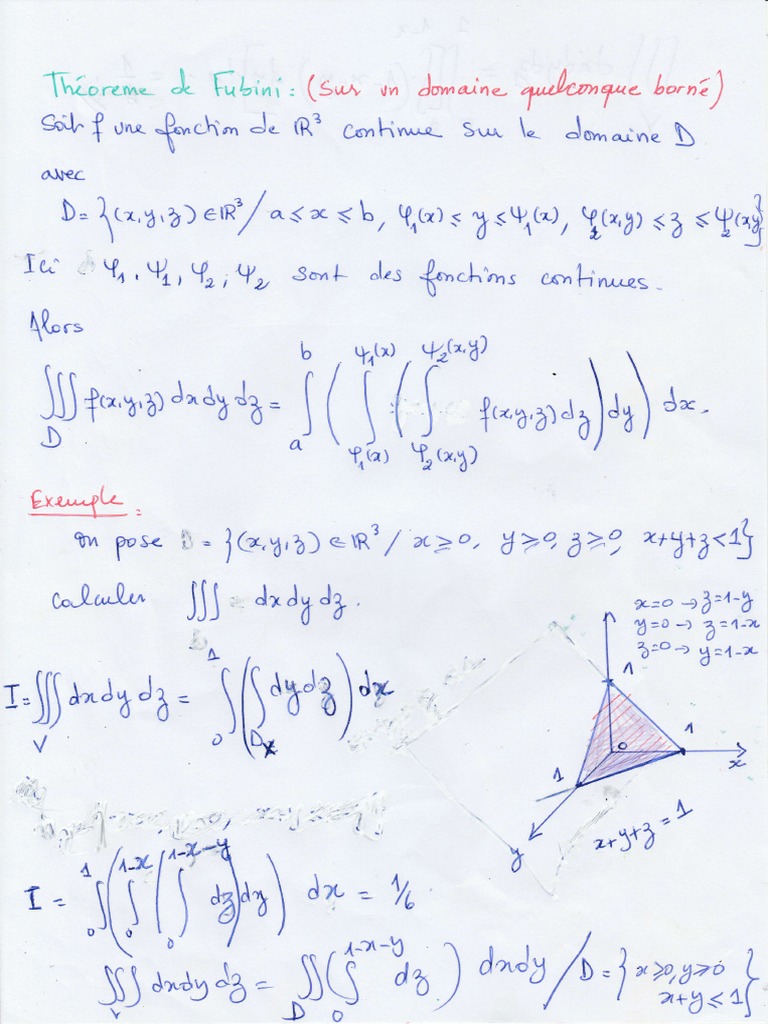 Théoreme de Fubini : (Sur un domaine quelconque borné)
Soit f une fonction de ℝ³ continue sur le domaine D
avec
D = {(x,y,z) ∈ ℝ³ / a ≤ x ≤ b, φ₁(x) ≤ y ≤ ψ₁(x), φ₂(x,y) ≤ z ≤ ψ₂(x,y)}
Ici φ₁, ψ₁, φ₂, ψ₂ sont des fonctions continues.
Alors
∭_D f(x,y,z) dx dy dz = ∫_a^b ( ∫_{φ₁(x)}^{ψ₁(x)} ( ∫_{φ₂(x,y)}^{ψ₂(x,y)} f(x,y,z) dz ) dy ) dx.
Exemple :
on pose D = {(x,y,z) ∈ ℝ³ / x ≥ 0, y ≥ 0, z ≥ 0, x+y+z < 1}
calculer ∭ dx dy dz.
x=0 → z=1-y
y=0 → z=1-x
z=0 → y=1-x
I = ∭_V dx dy dz = ∫_0^1 ( ∫_{Dx} dy dz ) dx
1
0
1
x
1
y
x+y+z=1
I = ∫_0^1 ( ∫_0^{1-x} ( ∫_0^{1-x-y} dz ) dy ) dx = 1/6
∭_V dx dy dz = ∬_D ( ∫_0^{1-x-y} dz ) dx dy / D = {x ≥ 0, y ≥ 0
x+y ≤ 1}